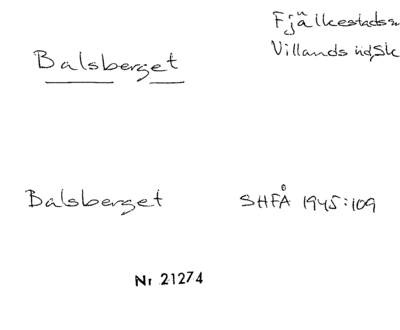 Fjälkestads sn
Villands hd Sk
Balsberget
Balsberget SHFÅ 1945:109
Nr 21274